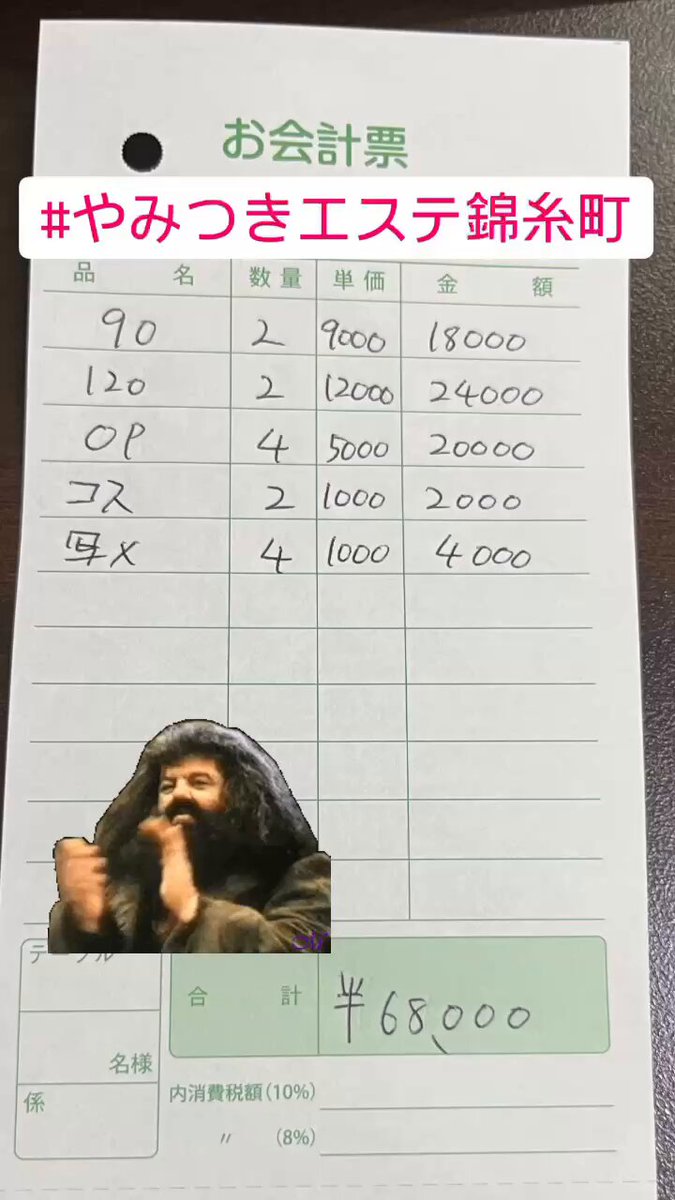 お会計票
#やみつきエステ錦糸町
品 名 数量 単価 金 額
90 2 9000 18000
120 2 12000 24000
OP 4 5000 20000
コス 2 1000 2000
写メ 4 1000 4000
合 計 ¥68,000
名様
係
内消費税額(10%)
〃 (8%)